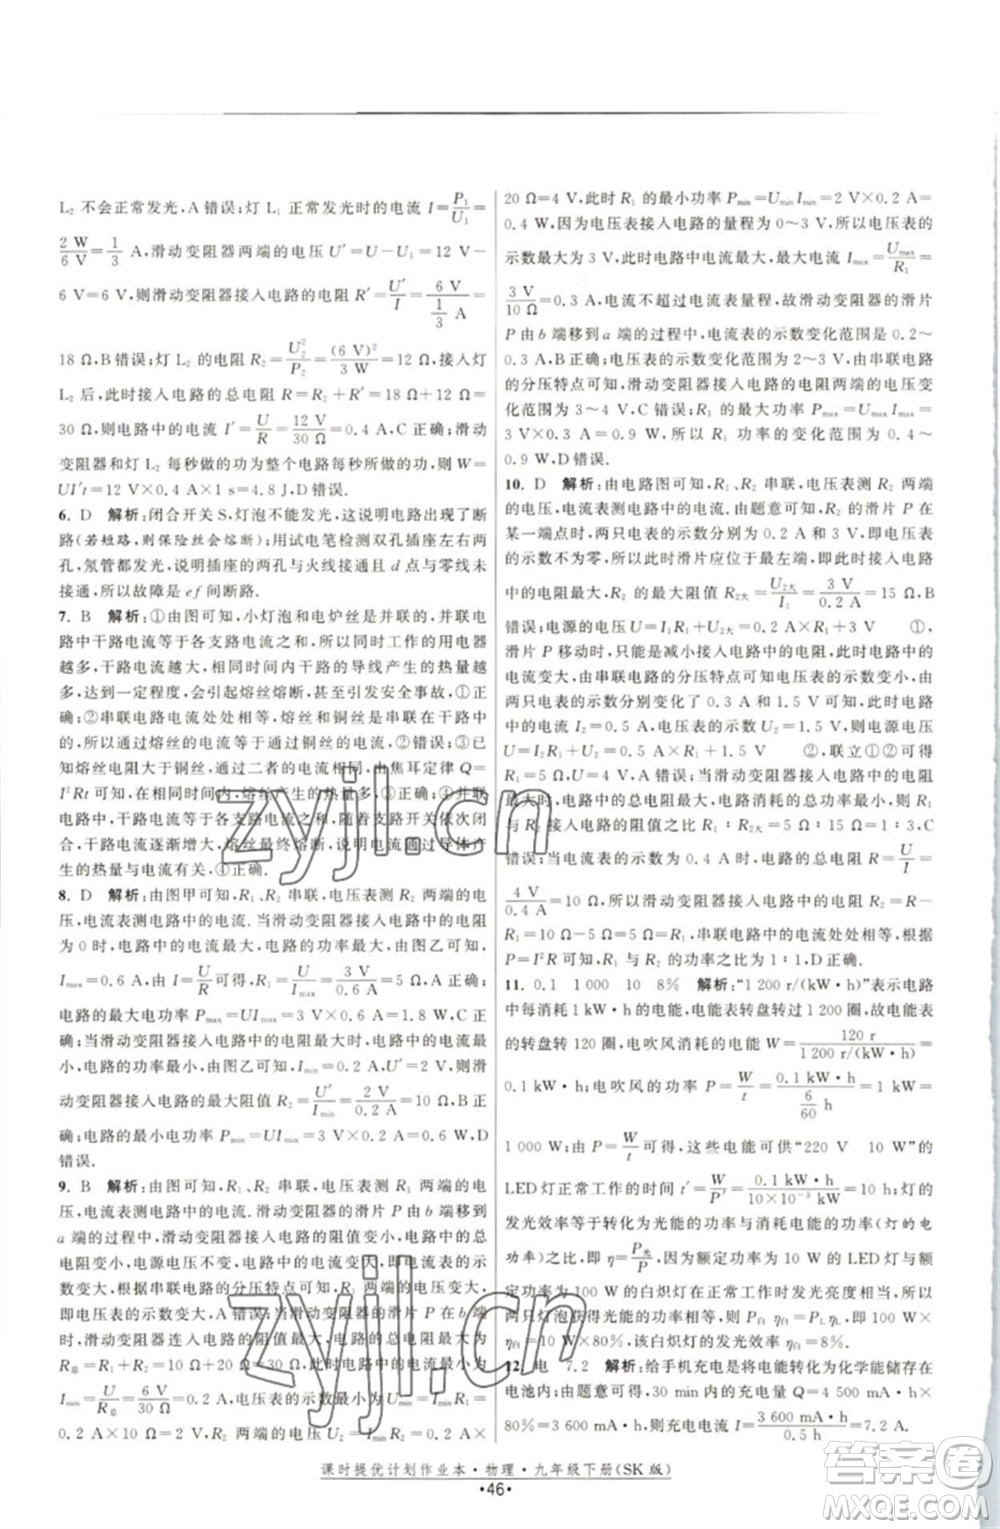 L₂ 不会正常发光,A 错误;灯 L₁ 正常发光时的电流 I=P₁/U₁=
2 W/6 V=1/3 A,滑动变阻器两端的电压 U′=U-U₁=12 V-
6 V=6 V,则滑动变阻器接入电路的电阻 R′=U′/I=6 V/(1/3 A)=
18 Ω,B错误;灯 L₂ 的电阻 R₂=U₂²/P₂=(6 V)²/3 W=12 Ω,接入灯
L₂ 后,此时接入电路的总电阻 R=R₂+R′=18 Ω+12 Ω=
30 Ω,则电路中的电流 I′=U/R=12 V/30 Ω=0.4 A,C 正确;滑动
变阻器和灯 L₂ 每秒做的功为整个电路每秒做的功 W=
UI′t=12 V×0.4 A×1 s=4.8 J,D 错误.
6. D 解析:闭合开关 S,灯泡不能发光,这说明电路出现了断
路(若短路,则保险丝会熔断);用试电笔检测双孔插座左右两
孔,氖管都发光,说明插座的两孔与火线接通且 d 点与零线未
接通,所以故障是 ef 间断路.
7. B 解析:①由图可知,小灯泡和电炉丝是并联的,并联
电路中干路电流等于各支路电流之和,所以同时工作的用电器
越多,干路电流越大,相同时间内干路的导线产生的热量越
多,达到一定程度,会引起熔丝熔断或引发安全事故,①正
确;②串联电路电流处处相等,熔丝和铜丝是串联在电路中
的,所以通过熔丝的电流等于铜丝,②错误;③熔丝熔断时
的电阻大于铜丝,通过二者的电流相同,由焦耳定律 Q=
I²Rt 可知,相同时间内,熔丝产生的热量多,③错误;④并联
电路中,干路电流等于各支路电流之和,随着支路开关闭合,
干路电流逐渐增大,熔丝最终熔断,说明电流通过导体产
生的热量与电流有关,④正确.
8. D 解析:由图甲可知,R₁、R₂ 串联,电压表测 R₂ 两端的电
压,电流表测电路中的电流.当滑动变阻器接入电路中的电阻
为 0 时,电路中的电流最大,电路的功率最大,由图乙可知,
Imax=0.6 A,由 I=U/R可得,R₁=U/Imax=3 V/0.6 A=5 Ω,A 正确;
电路的最大电功率 Pmax=UImax=3 V×0.6 A=1.8 W,C 正
确;当滑动变阻器接入电路中的电阻最大时,电路中的电流最
小,电路的功率最小,由图乙可知,Imin=0.2 A,U′=2 V,则滑
动变阻器接入电路的最大阻值 R₂=U′/Imin=2 V/0.2 A=10 Ω,B 正
确;电路的最小电功率 Pmin=UImin=3 V×0.2 A=0.6 W,D
错误.
9. B 解析:由图可知,R₁、R₂ 串联,电压表测 R₁ 两端的电
压,电流表测电路中的电流.在滑动变阻器的滑片 P 由 b 移到
a 端的过程中,滑动变阻器接入电路的电阻变小,电路中的总
电阻变小,电源电压不变,电路中的电流变大,电流表的示数变
大,根据串联电路的分压特点可知,R₁ 两端的电压变大,
即电压表的示数变大,A错误;当滑动变阻器的滑片 P 在 b 端
时,滑动变阻器连入电路的阻值最大,电路中的电流最小,I=
U/R总=6 V/30 Ω=0.2 A,电压表的示数最小,U₁=IminR₁=
0.2 A×10 Ω=2 V,R₂ 两端的电压 U₂=IminR₂=0.2 A×
20 Ω=4 V,此时 R₁ 的最小功率 Pmin=Umin Imin=2 V×0.2 A=
0.4 W,因为电压表接入电路的量程为 0～3 V,所以电压表的
示数最大为 3 V,此时电路中的电流最大,最大电流 Imax=Umax/R₁=
3 V/10 Ω=0.3 A,电流不超过电流表量程,故滑动变阻器的滑片
P 由 b 端移到 a 端的过程中,电流表的示数变化范围是 0.2～
0.3 A,B正确;电压表的示数变化范围为 2～3 V,由串联电路
的分压特点可知,滑动变阻器的电阻两端的电压变化
范围为 3～4 V,C 错误;R₁ 的最大功率 Pmax=UmaxImax=3 V×
0.3 A=0.9 W,所以 R₁ 功率的变化范围为 0.4～
0.9 W,D 错误.
10. D 解析:由电路图可知,R₁、R₂ 串联,电压表测 R₂ 两端
的电压,电流表测电路中的电流.由题意可知,滑片 P 在
某一端点时,两只电表的示数分别为 0.2 A 和 3 V,电压表
的示数不为零,此时滑片应位于最左端,此时接入电路
中的电阻最大,R₂ 的最大阻值 R₂大=U₂大/I₁=3 V/0.2 A=15 Ω,B
错误;电源的电压 U=I₁R₁+U₂大=0.2 A×R₁+3 V ①,
滑片 P 移动后,只能是减小接入电路中的电阻,电路中的电
流变大,由串联电路的分压特点可知电压表示数变小,由
两只电表的示数分别变化了 0.3 A 和 1.5 V 可知,此时电路
中的电流 I₂=0.5 A,电压表的示数 U₂=1.5 V,则电源电压
U=I₂R₁+U₂=0.5 A×R₁+1.5 V ②,联立①②可得
R₁=5 Ω,U=4 V,A错误;当滑动变阻器消耗的电功率最大时,
电路中的总电阻最大,电路中的总功率最小,则 R₁
与 R₂ 接入电路的阻值之比 R₁∶R₂大=5 Ω∶15 Ω=1∶3,C
错误;当电流表的示数为 0.4 A 时,电路的总电阻 R=U/I=
4 V/0.4 A=10 Ω,所以滑动变阻器接入电路中的电阻 R₂=R-
R₁=10 Ω-5 Ω=5 Ω=R₁,串联电路中的电流处处相等,根据
P=I²R 可知,两电阻消耗的电功率之比为 1∶1,D 正确.
11. 0.1 1 000 10 8% 解析:“1 200 r/(kW·h)”表示电路
中每消耗1 kW·h 的电能,电能表的转盘转过 1 200 圈,故电能表
的转盘转 120 圈,电吹风消耗的电能 W=120 r/1 200 r/(kW·h)=
0.1 kW·h,电吹风的功率 P=W/t=0.1 kW·h/(6/60 h)=
1 000 W;由 P=W/t可得,这些电能可供“220 V 10 W”的
LED灯正常工作的时间 t′=W/P′=0.1 kW·h/10×10⁻³ kW=10 h;灯的
发光效率等于转化为光能的功率与消耗电能的功率(灯的电
功率)之比,即 η=P光/P,因为额定功率为 10 W 的 LED 灯与额
定功率为 100 W 的白炽灯在正常工作时发光亮度相当,
所以两灯泡获得光能的功率相等,即 P白×η白=PLηL,P白×
η白=10 W×80%,该白炽灯的发光效率 η白=8%.
12. 电 7.2 解析:给手机充电是将电能转化为化学能储存在
电池内;由题意可得,30 min内的充电量 Q=4 500 mA·h×
80%=3 600 mA·h,则充电电流 I=3 600 mA·h/0.5 h=7.2 A.
课时提优计划作业本·物理·九年级下册(SK版)
·46·
zyjl.cn
zyjl.cn
作业帮
MXQE.COM